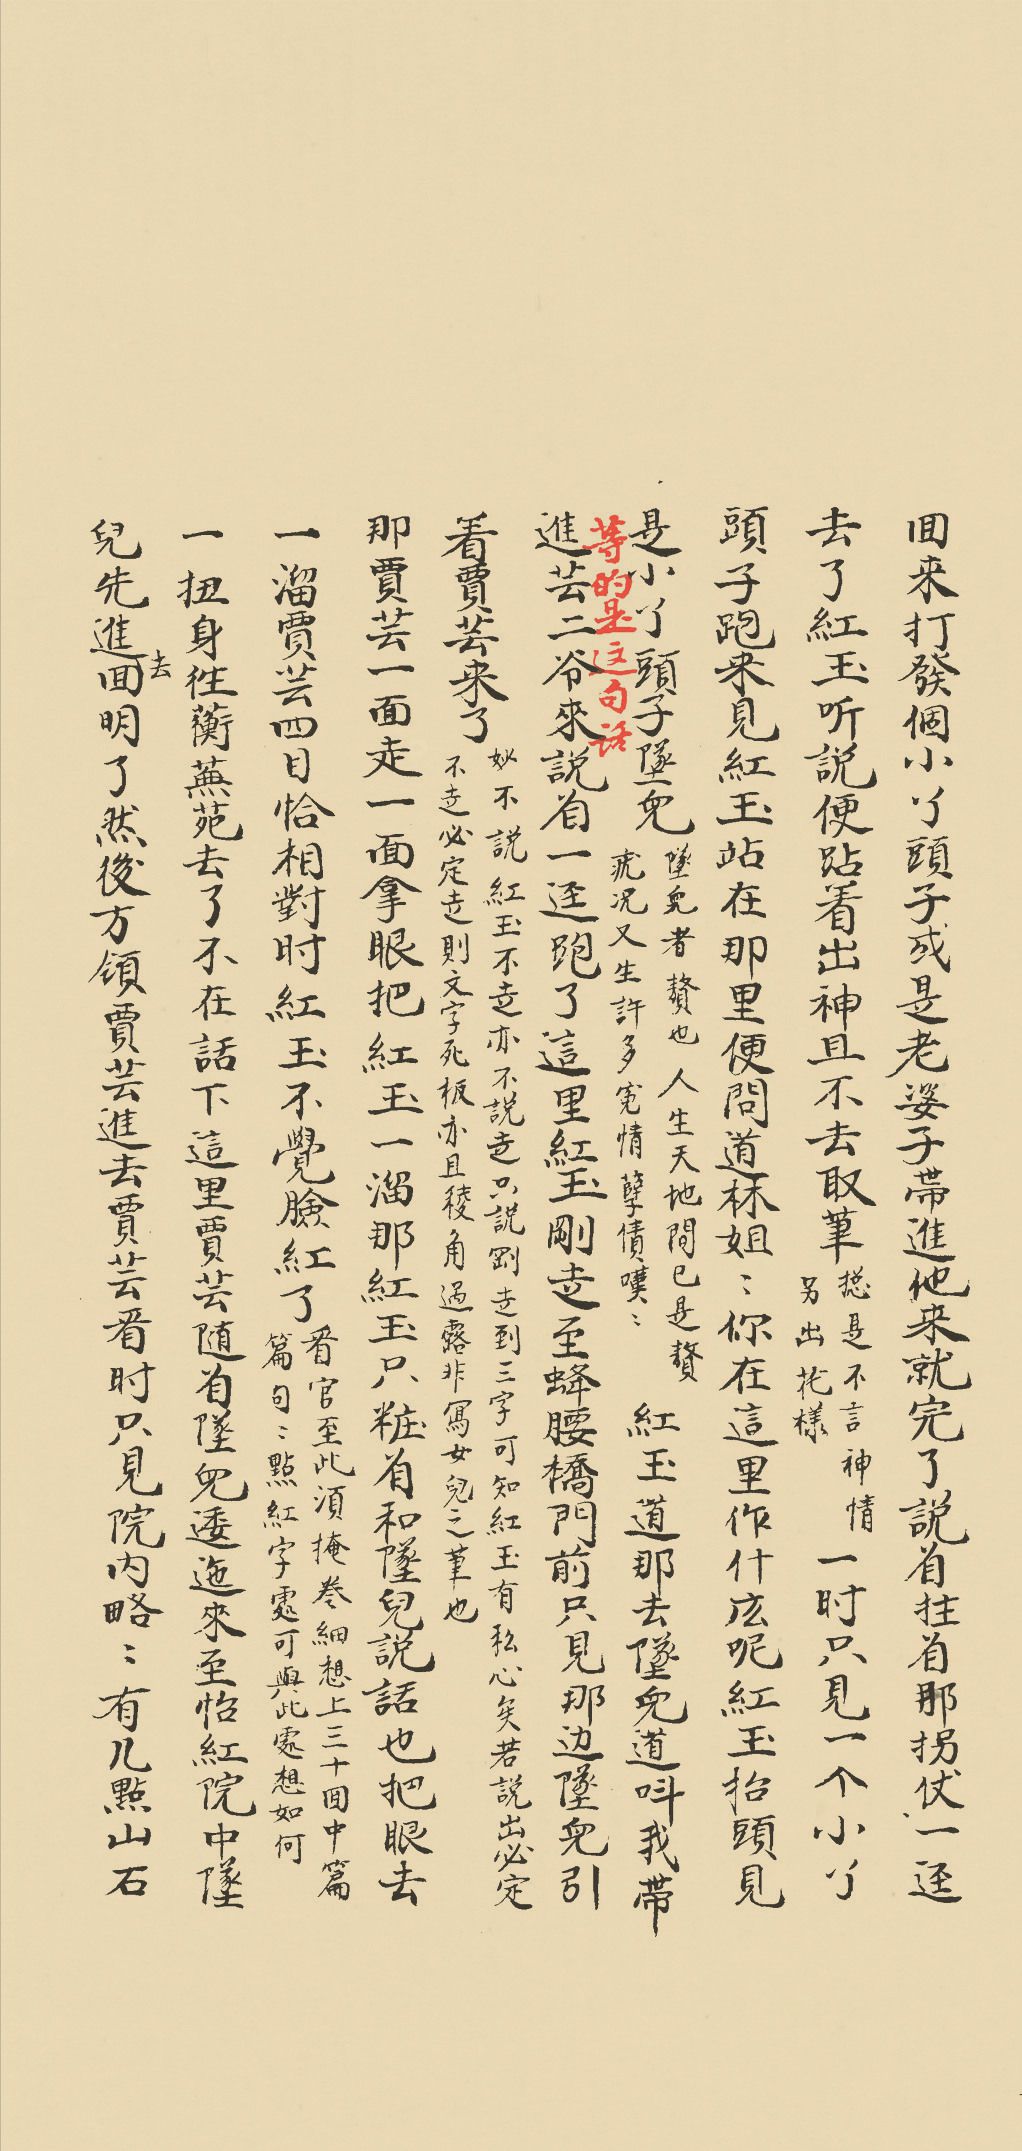 回来打發個小丫頭子或是老婆子帶進他来就完了說着拄着那拐仗一逕
去了紅玉听說便跕着出神且不去取筆
揔是不言神情
另出花樣
一时只見一个小丫
頭子跑来見紅玉站在那里便問道林姐〻你在這里作什庅呢紅玉抬頭見
是小丫頭子墜兒
墜兒者贅也人生天地間已是贅
疣况又生許多寃情孽債嘆〻
紅玉道那去墜兒道呌我帶
等的是这句话
進芸二爷來說着一逕跑了這里紅玉剛走至蜂腰橋門前只見那边墜兒引
着賈芸来了
妙不説紅玉不走亦不説走只説剛走到三字可知紅玉有私心矣若説出必定
不走必定走則文字死板亦且稜角過露非寫女兒之筆也
那賈芸一面走一面拿眼把紅玉一溜那紅玉只粧着和墜兒說話也把眼去
一溜賈芸四目恰相對时紅玉不覺臉紅了
看官至此湏掩卷細想上三十回中篇
篇句〻點紅字處可與此處想如何
一扭身徃蘅蕪苑去了不在話下這里賈芸随着墜兒逶迤來至怡紅院中墜
兒先進去回明了然後方領賈芸進去賈芸看时只見院内略〻有几點山石